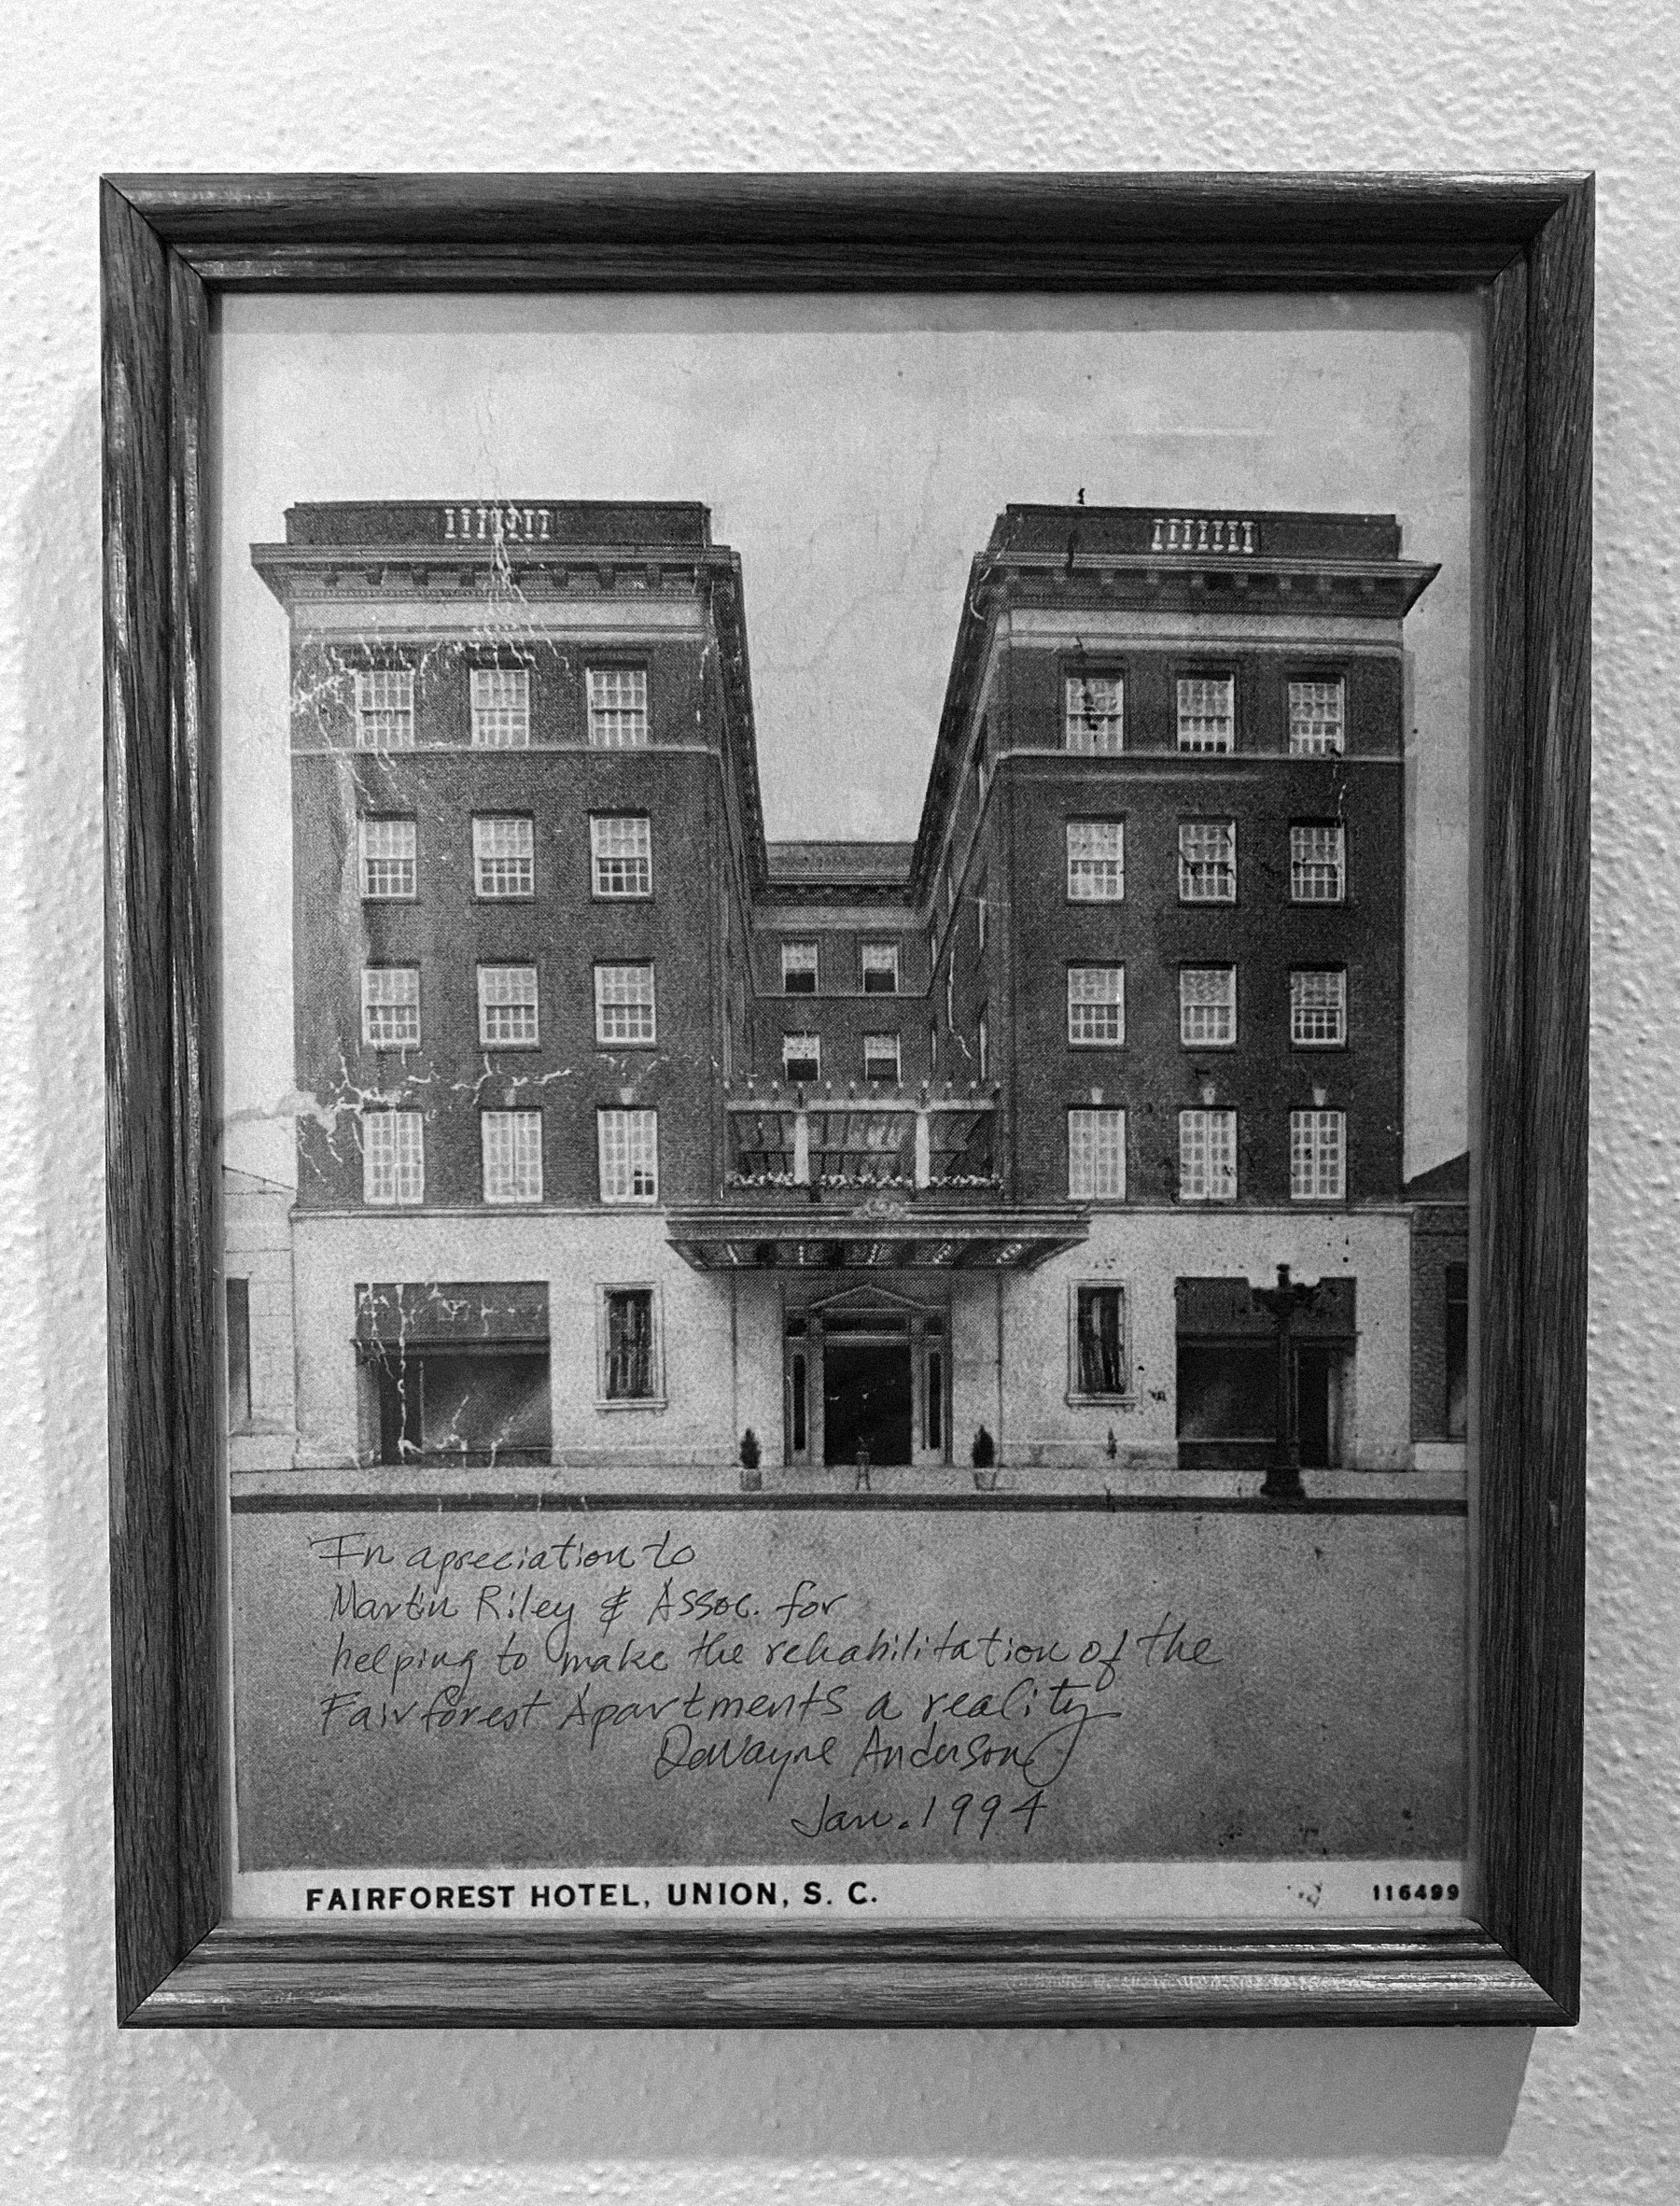 In apreciation to
Martin Riley & Assoc. for
helping to make the rehabilitation of the
Fairforest Apartments a reality
DeWayne Anderson
Jan. 1994
FAIRFOREST HOTEL, UNION, S. C.
116499